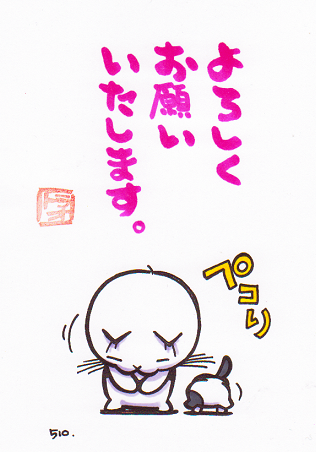 よろしく
お願い
いたします。
ペコリ
510.